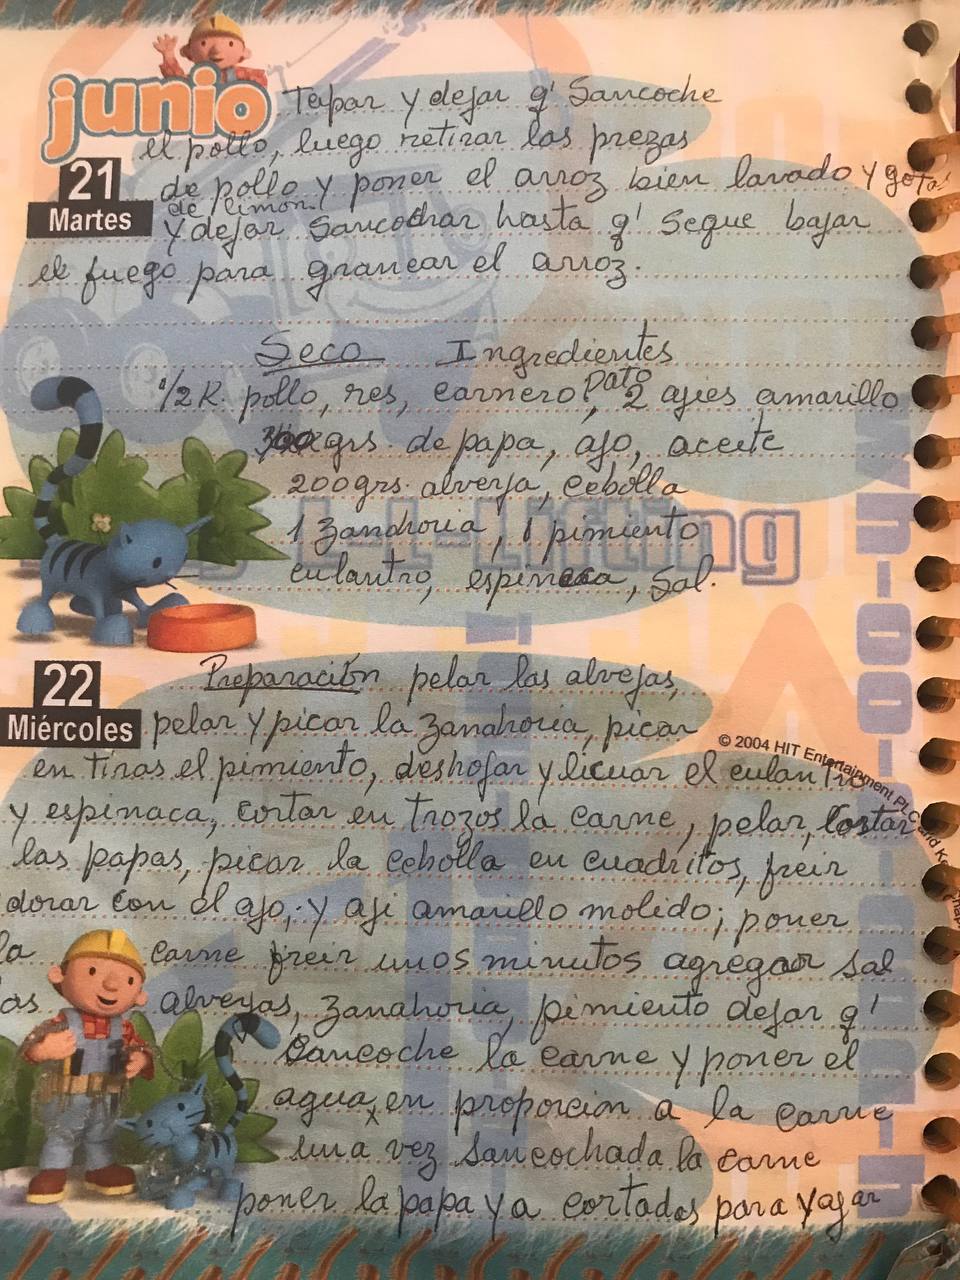 junio
Tapar y dejar q' Sancoche
el pollo, luego retirar las prezas
21
de pollo y poner el arroz bien lavado y gotas
de limon.
Martes
y dejar Sancochar hasta q' segue bajar
el fuego para granear el arroz.
Seco Ingredientes
1/2 K. pollo, res, carnero, pato, 2 ajies amarillo
grs. de papa, ajo, aceite
200 grs. alverja, cebolla
1 zanahoria, 1 pimiento
Lifting
culantro, espinaca, sal.
22
Preparación pelar las alvejas,
Miércoles
pelar y picar la zanahoria, picar
© 2004 HIT Entertainment PLC and K
en tiras el pimiento, deshojar y licuar el culantro
y espinaca, cortar en trozos la carne, pelar, cortar
las papas, picar la cebolla en cuadritos, freir
dorar con el ajo, y aji amarillo molido; poner
la carne freir unos minutos agregar sal
las alverjas, zanahoria, pimiento dejar q'
Sancoche la carne y poner el
agua, en proporcion a la carne
una vez sancochada la carne
poner la papa ya cortadas para